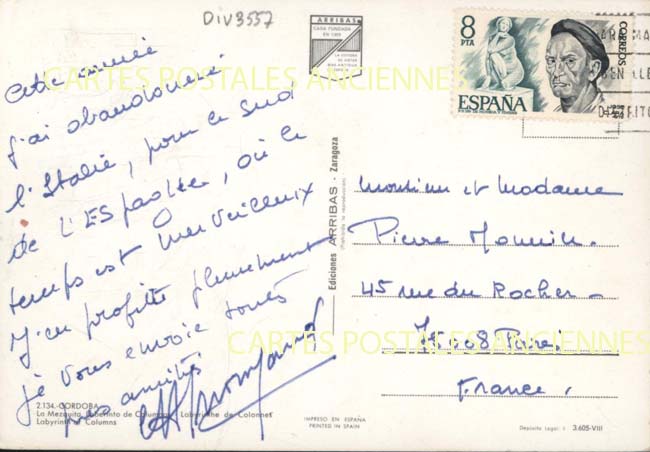 DIV3557
ARRIBAS
CASA FUNDADA
8
PTA
CORREOS
ESPAÑA
CARTES POSTALES ANCIENNES
cette année
j'ai abandonné
l'Italie, pour le sud
de l'Espagne, où le
temps est merveilleux
J'en profite pleinement
je vous envoie toutes
mes amitiés
Ediciones ARRIBAS - Zaragoza
Monsieur et Madame
Pierre
45 rue du Rocher
75008 Paris
France.
CARTES POSTALES ANCIENNES
2.134.-CORDOBA
La Mezquita, Laberinto de Columnas Labyrinthe de Colonnes
Labyrinth of Columns
IMPRESO EN ESPAÑA
PRINTED IN SPAIN
Depósito Legal: 3.605-VIII